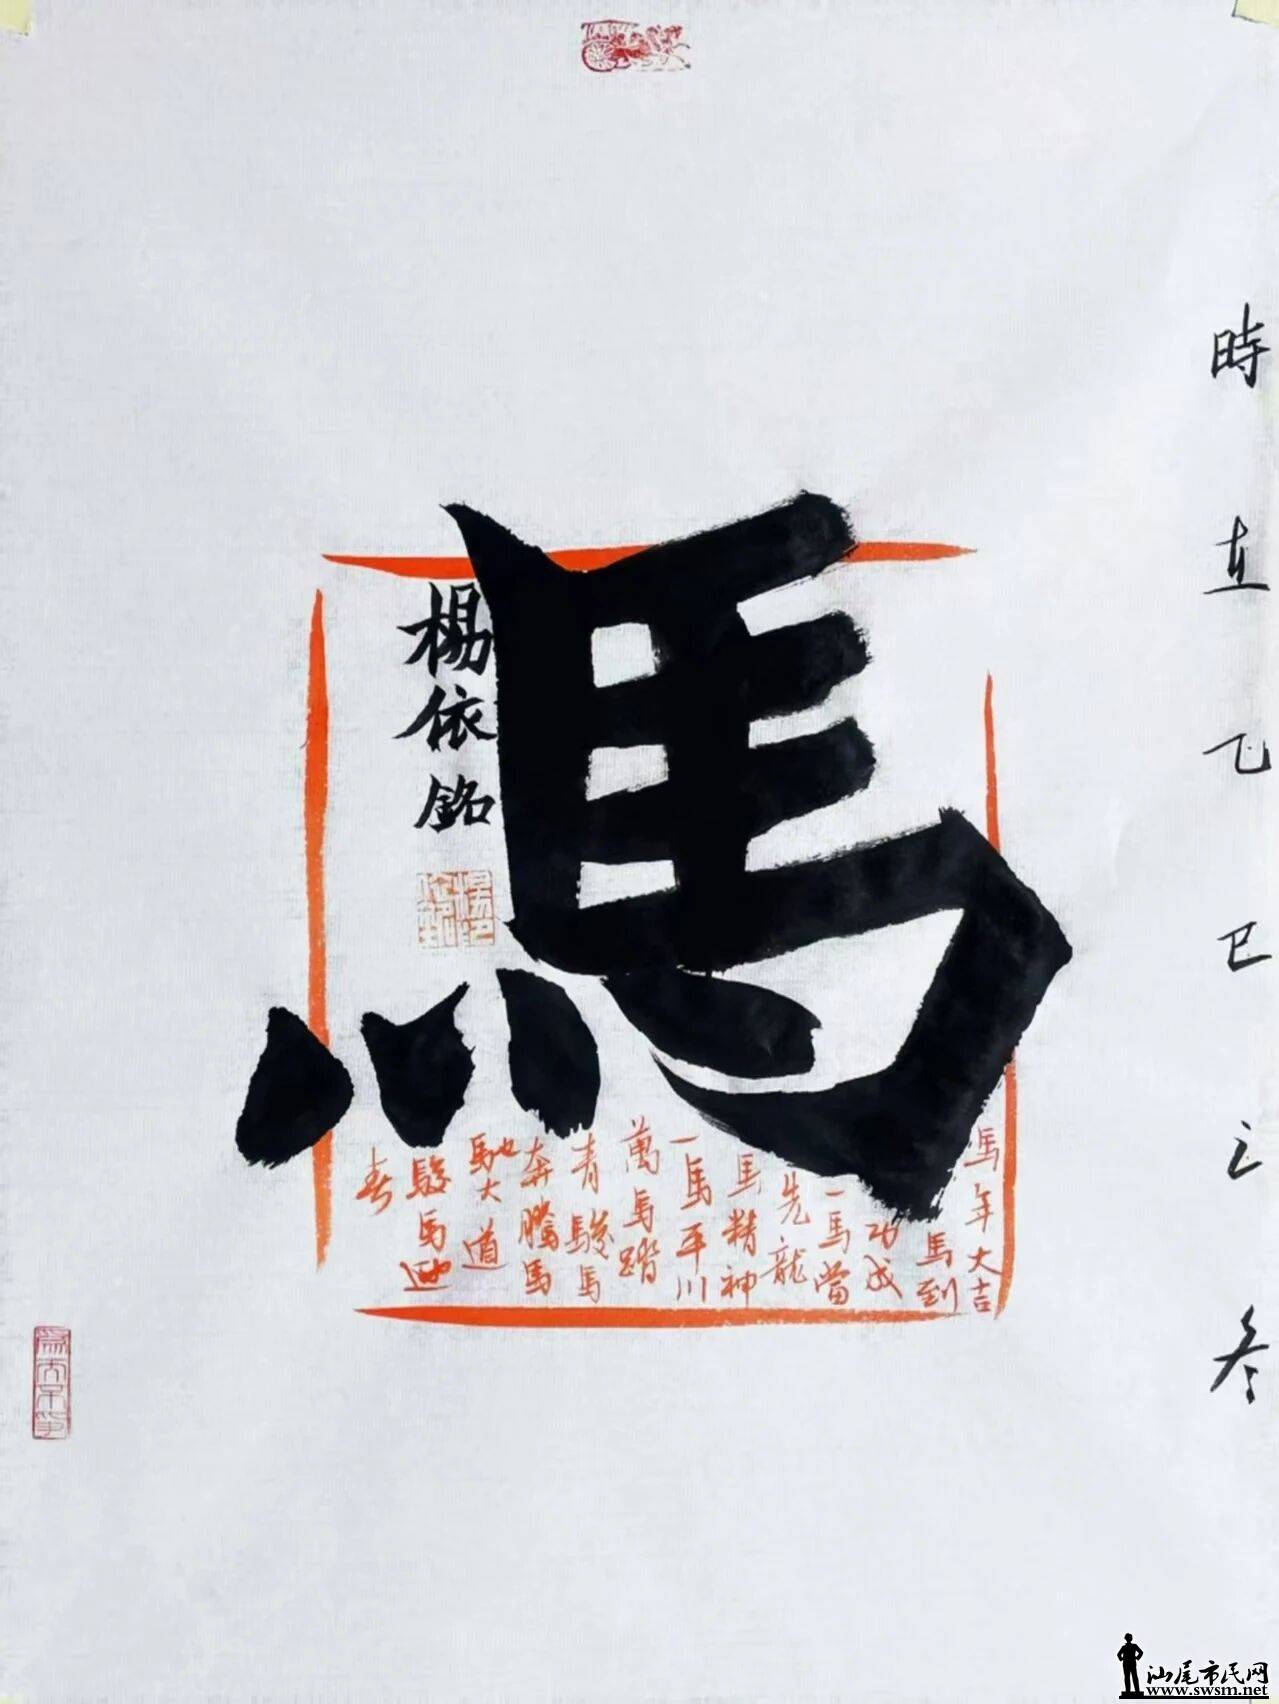 時在乙巳之冬
馬
楊依銘
馬年大吉
馬到
功成
一馬當
先龍
馬精神
一馬平川
萬馬踏
青駿馬
奔騰馬
馳大道
駿馬迎
春
汕尾市民网
www.swsm.net